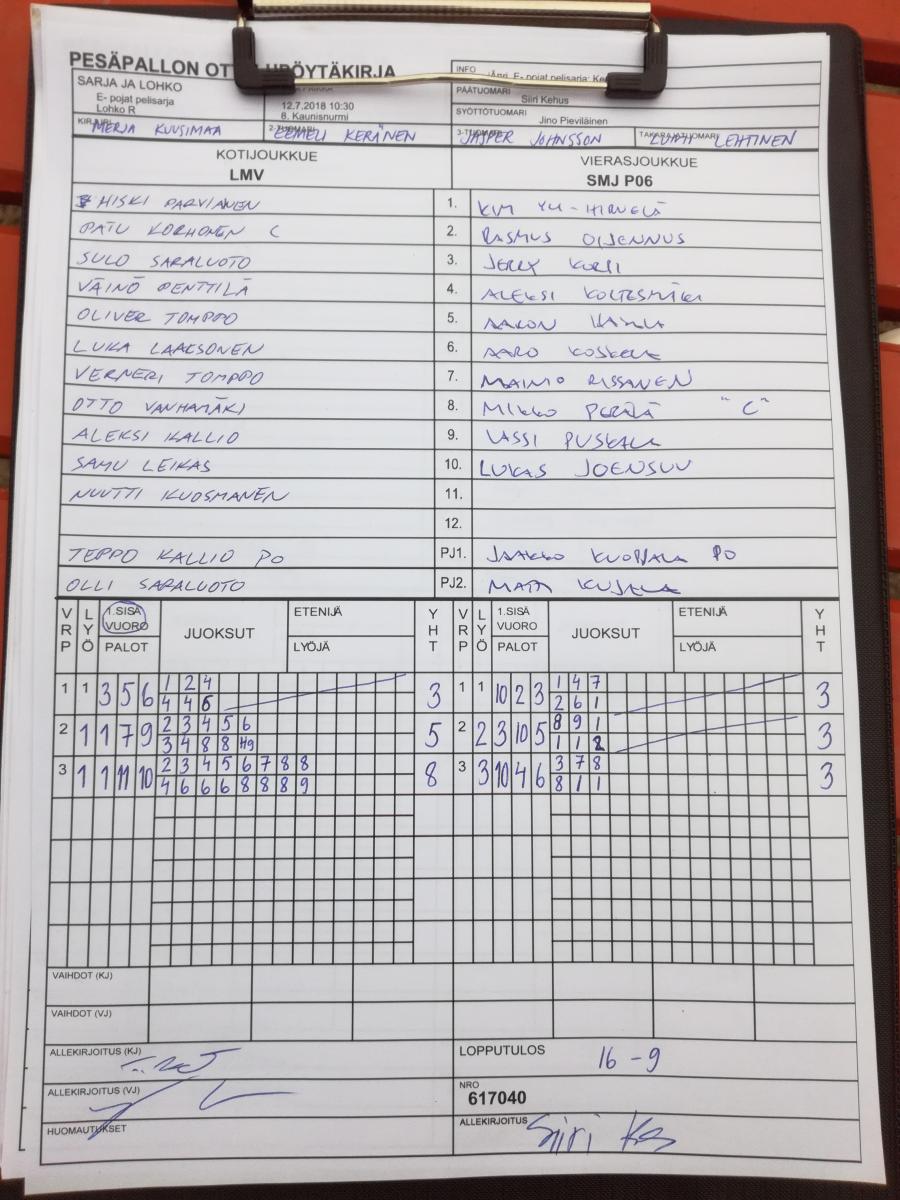 PESÄPALLON
SARJA JA LOHKO
E- pojat pelisarja
Lohko R
12.7.2018 10:30
8. Kaunisnurmi
INFO
E- pojat pelisarja:
PÄÄTUOMARI
Siiri Kehus
SYÖTTÖTUOMARI
Jino Pieviläinen
MERJA KUUSIMAA
EEMELI KERÄNEN
JASPER JOHNSSON
LEHTINEN
KOTIJOUKKUE
LMV
VIERASJOUKKUE
SMJ P06
HISKI PARVIANEN 1. KIM YLI-HIRVELÄ
PATU KORHONEN C 2. RASMUS OIJENNUS
SULO SARALUOTO 3. JERRY KORPI
VÄINÖ PENTTILÄ 4. ALEKSI KOLTESMÄKI
OLIVER TOMPPO 5. AARON
LUKA LAAKSONEN 6. AARO KOSKELA
VERNERI TOMPPO 7. MAINIO RISSANEN
OTTO VANHAMÄKI 8. MIKKO PERÄLÄ "C"
ALEKSI KALLIO 9. LASSI PUSKALA
SAMU LEIKAS 10. LUKAS JOENSUU
NUUTTI KUOSMANEN 11.
12.
TEPPO KALLIO PO PJ1. JAAKKO KUOPPALA PO
OLLI SARALUOTO PJ2. KUJALA
VRP LYÖ 1.SISÄ VUORO PALOT JUOKSUT ETENIJÄ LYÖJÄ YHT VRP LYÖ 1.SISÄ VUORO PALOT JUOKSUT ETENIJÄ LYÖJÄ YHT
1 1 3 5 6 1 2 4 3 1 1 10 2 3 1 4 7 3
4 4 6 2 6 1
2 1 1 7 9 2 3 4 5 6 5 2 2 3 10 5 8 9 1 3
3 4 8 8 Hg 1 1 2
3 1 1 11 10 2 3 4 5 6 7 8 8 8 3 3 10 4 6 3 7 8 3
4 6 6 6 8 8 8 9 8 1 1
VAIHDOT (KJ)
VAIHDOT (VJ)
ALLEKIRJOITUS (KJ)
LOPPUTULOS 16 - 9
ALLEKIRJOITUS (VJ)
NRO
617040
HUOMAUTUKSET
ALLEKIRJOITUS Siiri